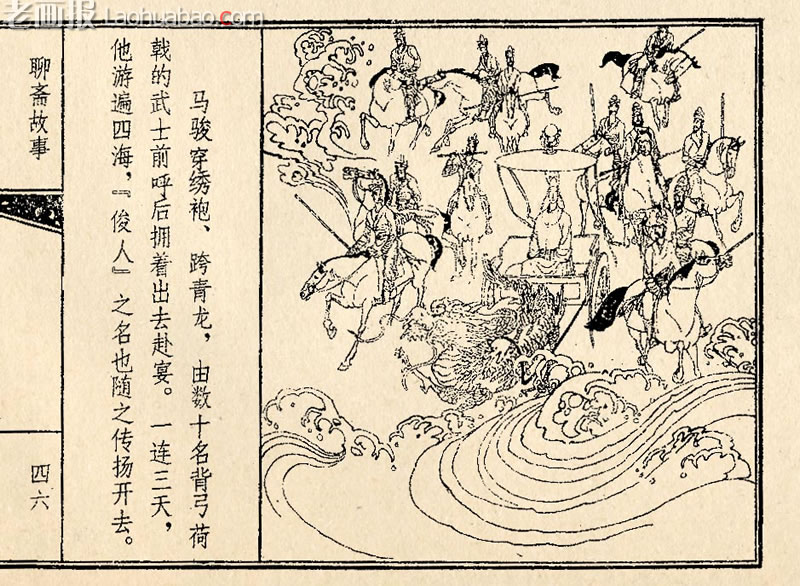 老画报
Laohuabao.com
聊斋故事
马骏穿绣袍、跨青龙，由数十名背弓荷
戟的武士前呼后拥着出去赴宴。一连三天，
他游遍四海，『俊人』之名也随之传扬开去。
四六